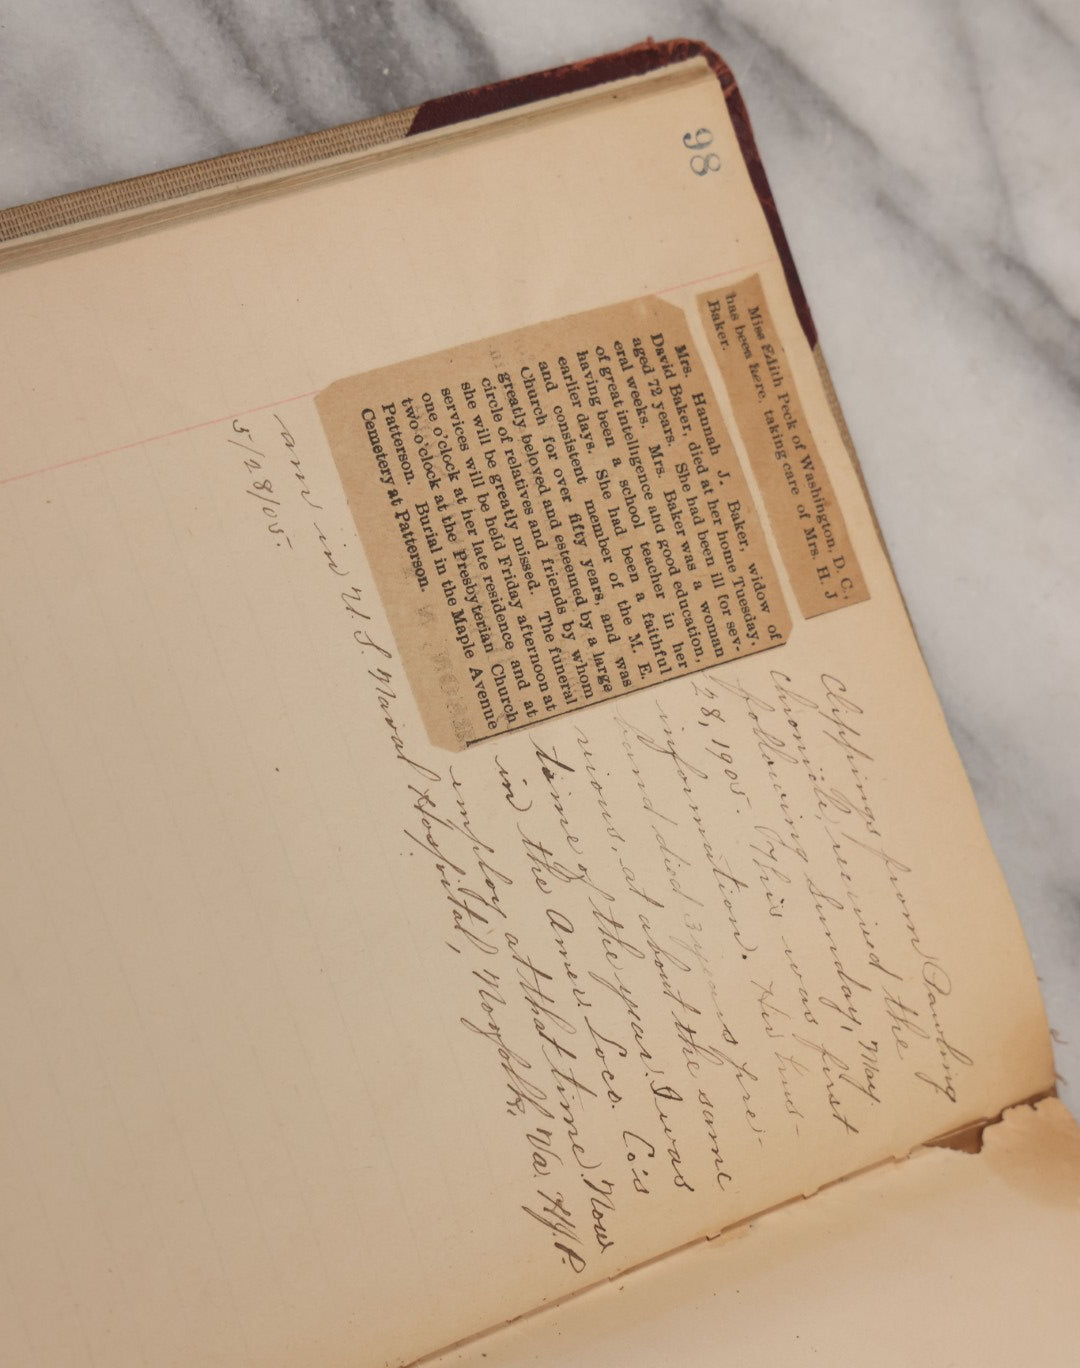 98
Miss Edith Peck of Washington, D. C.,
has been here, taking care of Mrs. H. J
Baker.
Mrs. Hannah J. Baker, widow of
David Baker, died at her home Tuesday,
aged 72 years. She had been ill for sev-
eral weeks. Mrs. Baker was a woman
of great intelligence and good education,
having been a school teacher in her
earlier days. She had been a faithful
and consistent member of the M. E.
Church for over fifty years, and was
greatly beloved and esteemed by a large
circle of relatives and friends by whom
she will be greatly missed. The funeral
services will be held Friday afternoon at
one o'clock at her late residence and at
two o'clock at the Presbyterian Church
Patterson. Burial in the Maple Avenue
Cemetery at Patterson.
Clippings from Pawling
Chronicle, received the
following Sunday, May.
28, 1905. This was first
information. Her hus-
band died 3 years pre-
vious, at about the same
time of the year. I was
in the Amer. Loco. Co's
employ at that time. Now
am in U. S. Naval Hospital, Norfolk, Va. H.J.P.
5/28/05.